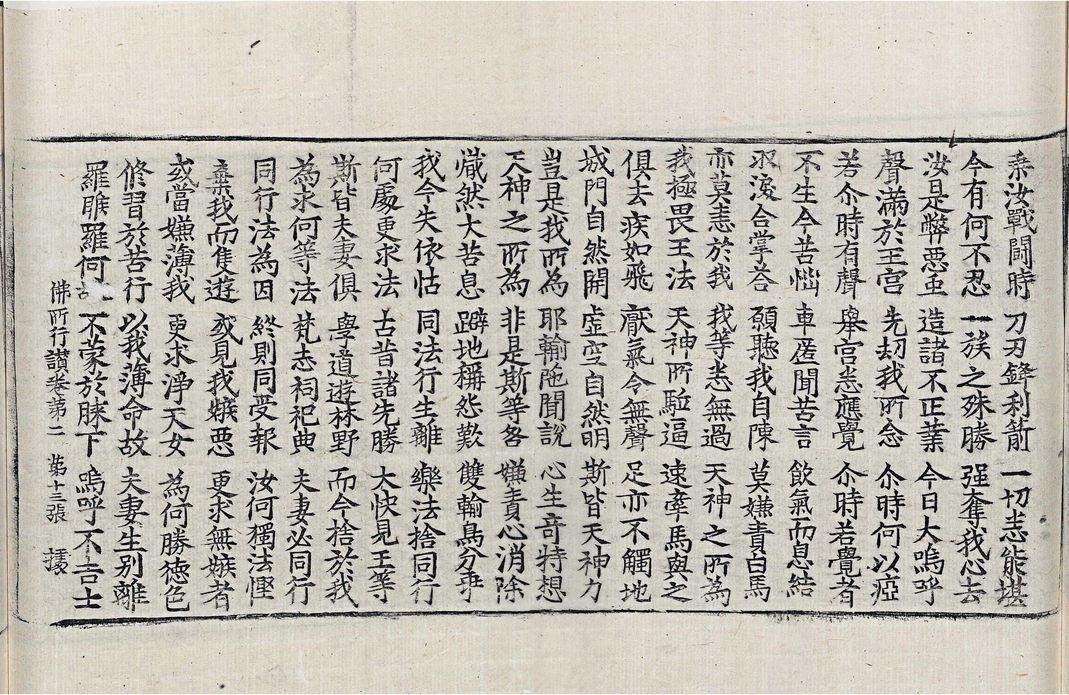 乘汝戰鬪時 刀刃鋒利箭 一切悉能堪
今有何不忍 一族之殊勝 强奪我心去
汝是弊惡虫 造諸不正業 今日大嗚呼
聲滿於王宮 先刧我所念 尒時何以瘂
若尒時有聲 舉宮悉應覺 尒時若覺者
不生今苦惱 車匿聞苦言 飲氣而息結
収淚合掌荅 願聽我自陳 莫嫌責白馬
亦莫恚於我 我等悉無過 天神之所為
我極畏王法 天神所駈逼 速牽馬與之
俱去疾如飛 厭氣令無聲 足亦不觸地
城門自然開 虛空自然明 斯皆天神力
豈是我所為 耶輸陁聞說 心生竒特想
天神之所為 非是斯等咎 嫌責心消除
熾然大苦息 躃地稱怨歎 雙輪鳥分乖
我今失依怙 同法行生離 樂法捨同行
何處更求法 古昔諸先勝 大快見王等
斯皆夫妻俱 學道遊林野 而今捨於我
為求何等法 梵志祠祀典 夫妻必同行
同行法為因 終則同受報 汝何獨法慳
棄我而隻遊 或見我嫉惡 更求無嫉者
或當嫌薄我 更求淨天女 為何勝德色
脩習於苦行 以我薄命故 夫妻生別離
羅睺羅何故 不蒙於膝下 嗚呼不吉士
佛所行讚卷第二 第十三張